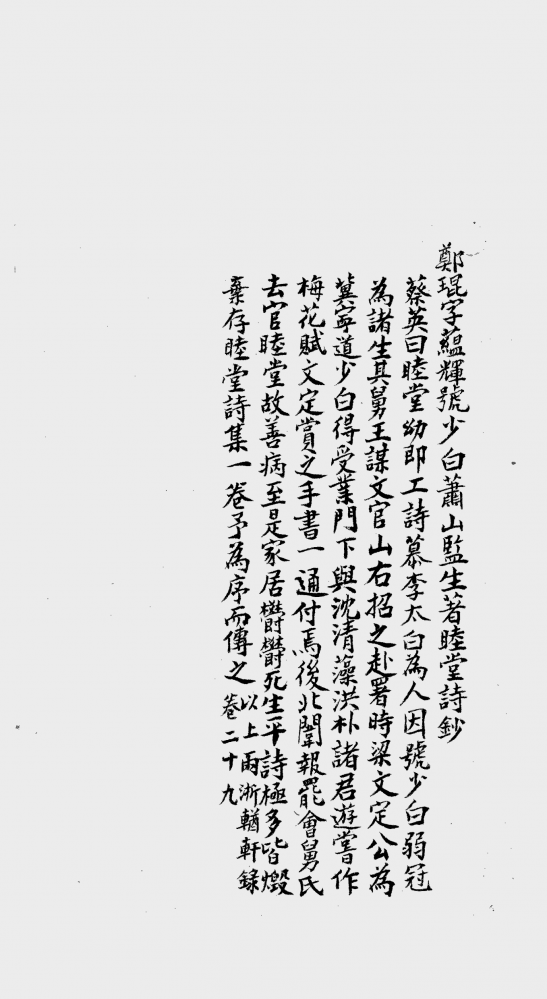 鄭琨字蘊輝號少白蕭山監生著睦堂詩鈔
蔡英曰睦堂幼即工詩慕李太白為人因號少白弱冠
為諸生其舅王謀文官山右招之赴署時梁文定公為
冀寧道少白得受業門下與沈清藻洪朴諸君遊嘗作
梅花賦文定賞之手書一通付焉後北闈報罷會舅氏
去官睦堂故善病至是家居欝欝死生平詩極多皆燬
棄存睦堂詩集一卷予為序而傳之
以上兩浙輶軒錄
卷二十九